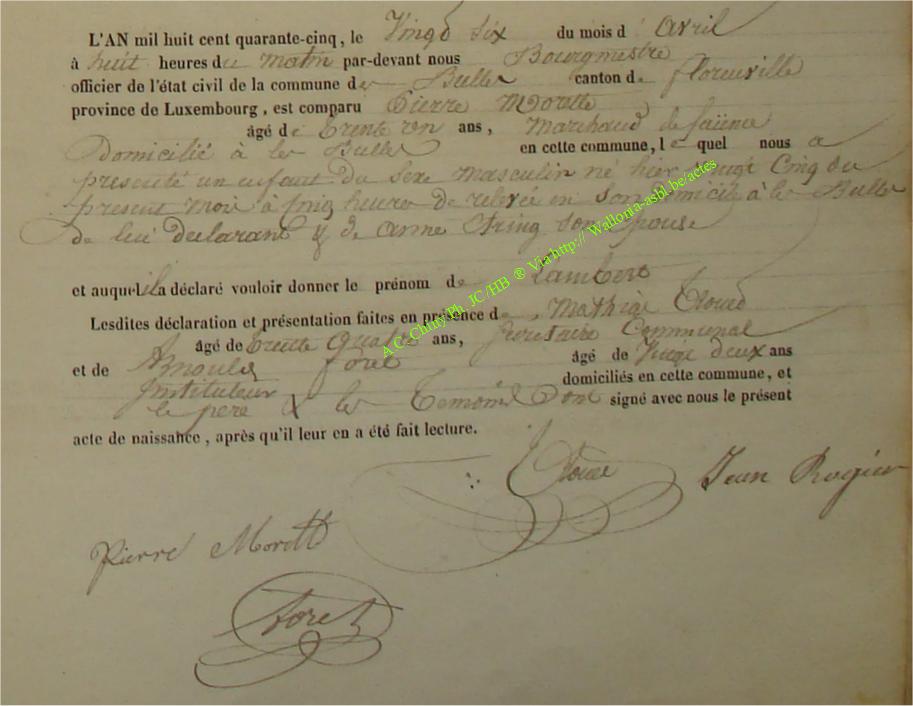 L'AN mil huit cent quarante-cinq, le Vingt Six du mois d'avril
à huit heures du matin par-devant nous Bourgmestre
officier de l'état civil de la commune des Bulles canton de florenville
province de Luxembourg, est comparu Pierre Morette
âgé de trente un ans, Marchand de faïence
Domicilié à les Bulles en cette commune, lequel nous a
presenté un enfant du Sexe Masculin né hier vingt Cinq du
present Mois à Cinq heures de relevée en Son domicile à les Bulles
de lui declarant & de anne String Son epouse
et auquel il a déclaré vouloir donner le prénom de Lambert
Lesdites déclaration et présentation faites en présence de Mathieu
âgé de trente quatre ans, Secretaire Communal
et de Arnould foret âgé de Vingt deux ans
Instituteur domiciliés en cette commune, et
le pere & les temoins Dont signé avec nous le présent
acte de naissance, après qu'il leur en a été fait lecture.
Jean Rogier
Pierre Morette
foret
A C-Chiny Ph. JC/HB ® Via http:// Wallonia-asbl.be/actes